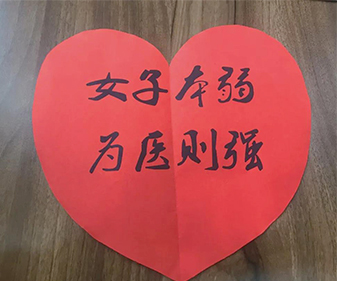 女子本弱
为医则强